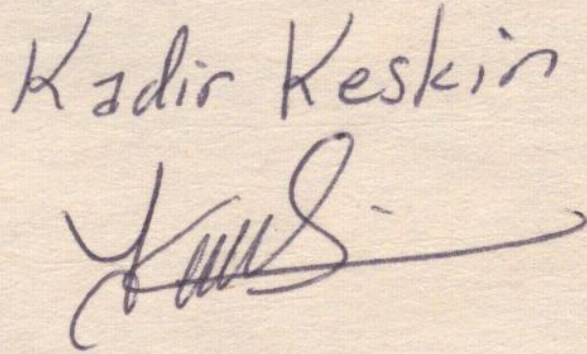 Kadir Keskin